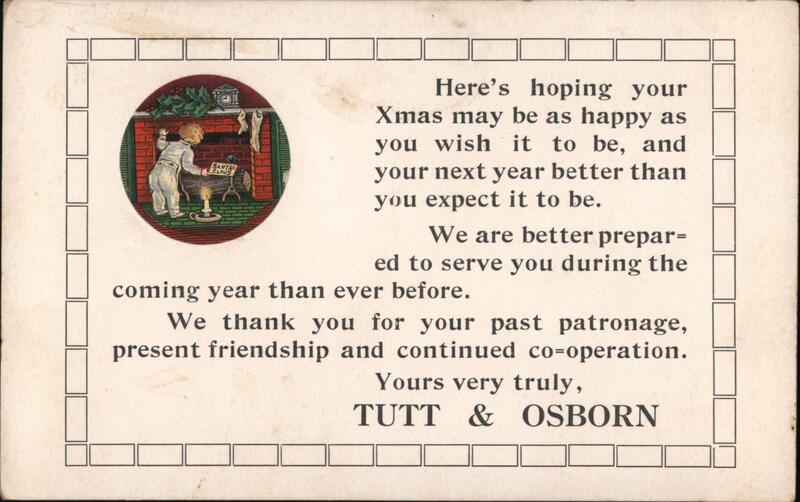 Here's hoping your
Xmas may be as happy as
you wish it to be, and
your next year better than
you expect it to be.
We are better prepar=
ed to serve you during the
coming year than ever before.
We thank you for your past patronage,
present friendship and continued co=operation.
Yours very truly,
TUTT & OSBORN
SANTA
CLAUS